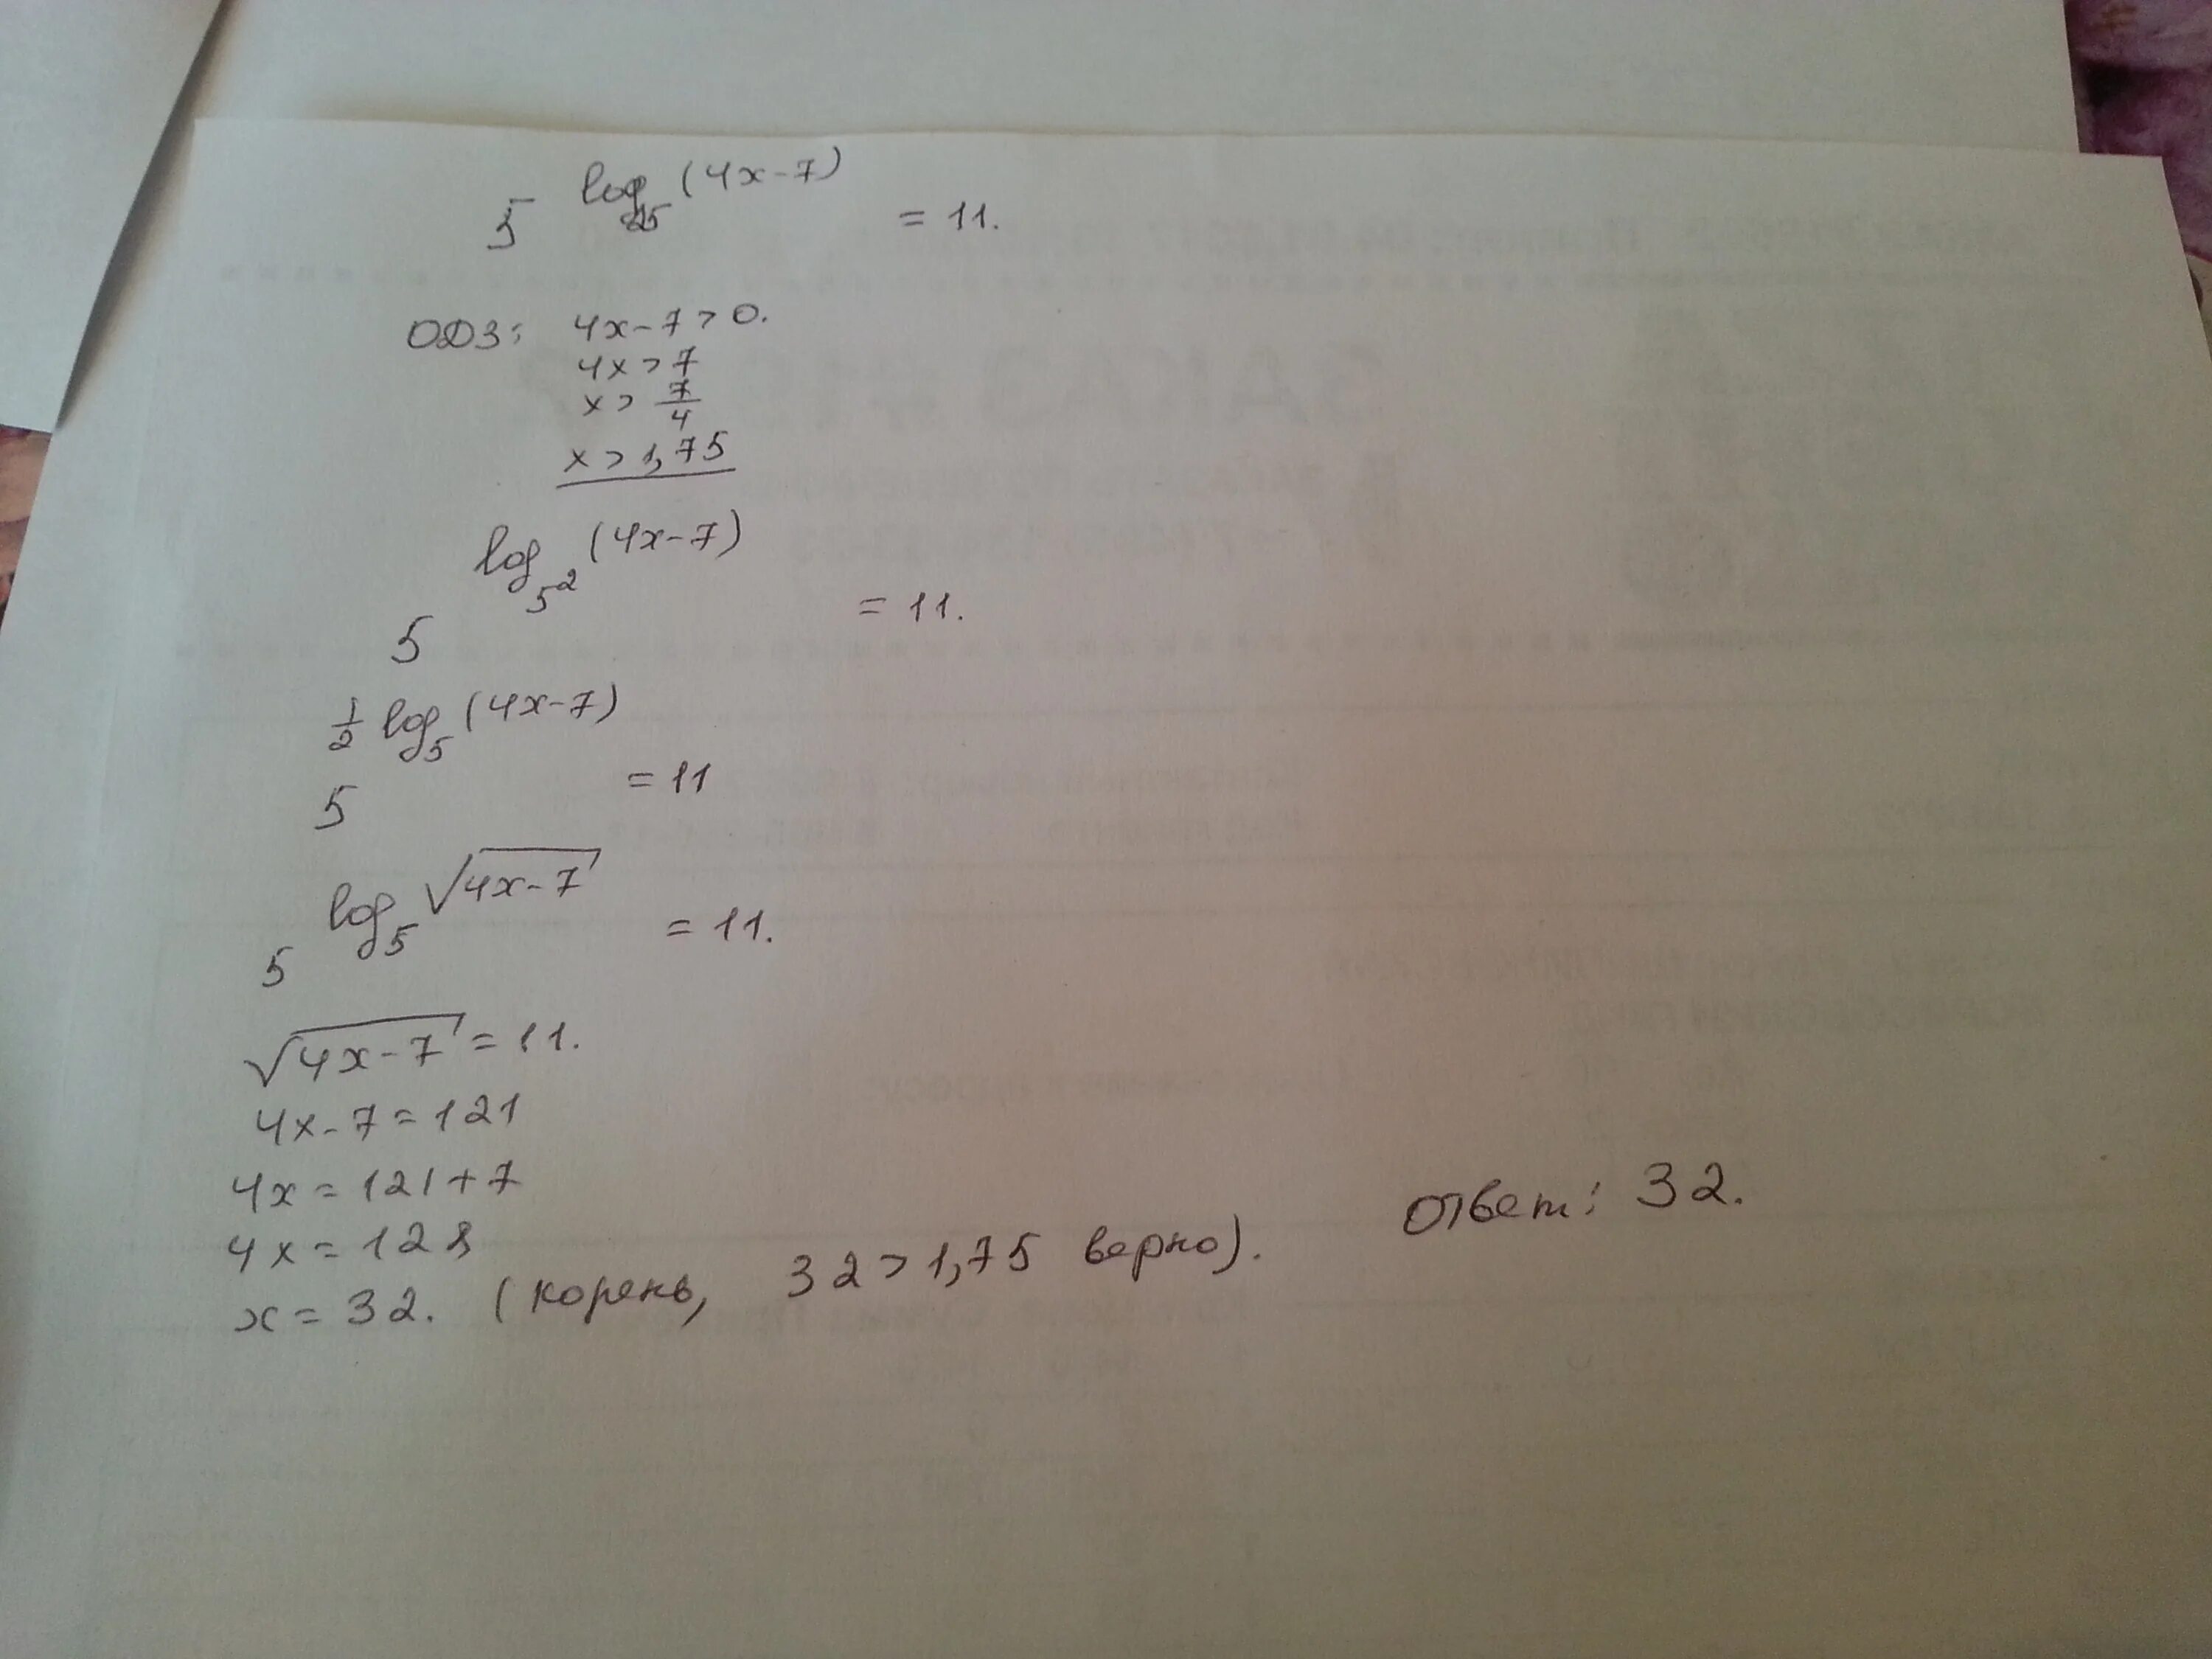 5^{log_{25}(4x-7)} = 11.
ОДЗ: 4x-7>0.
4x>7
x> 7/4
x>1,75
5^{log_{5^2}(4x-7)} = 11.
5^{1/2 log_5(4x-7)} = 11
5^{log_5 √(4x-7)} = 11.
√(4x-7) = 11.
4x-7=121
4x=121+7
4x=128
x=32. (корень, 32>1,75 верно).
Ответ: 32.